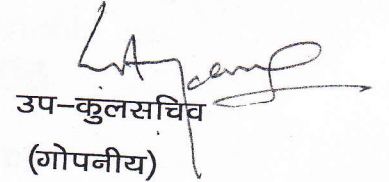 उप–कुलसचिव
(गोपनीय)